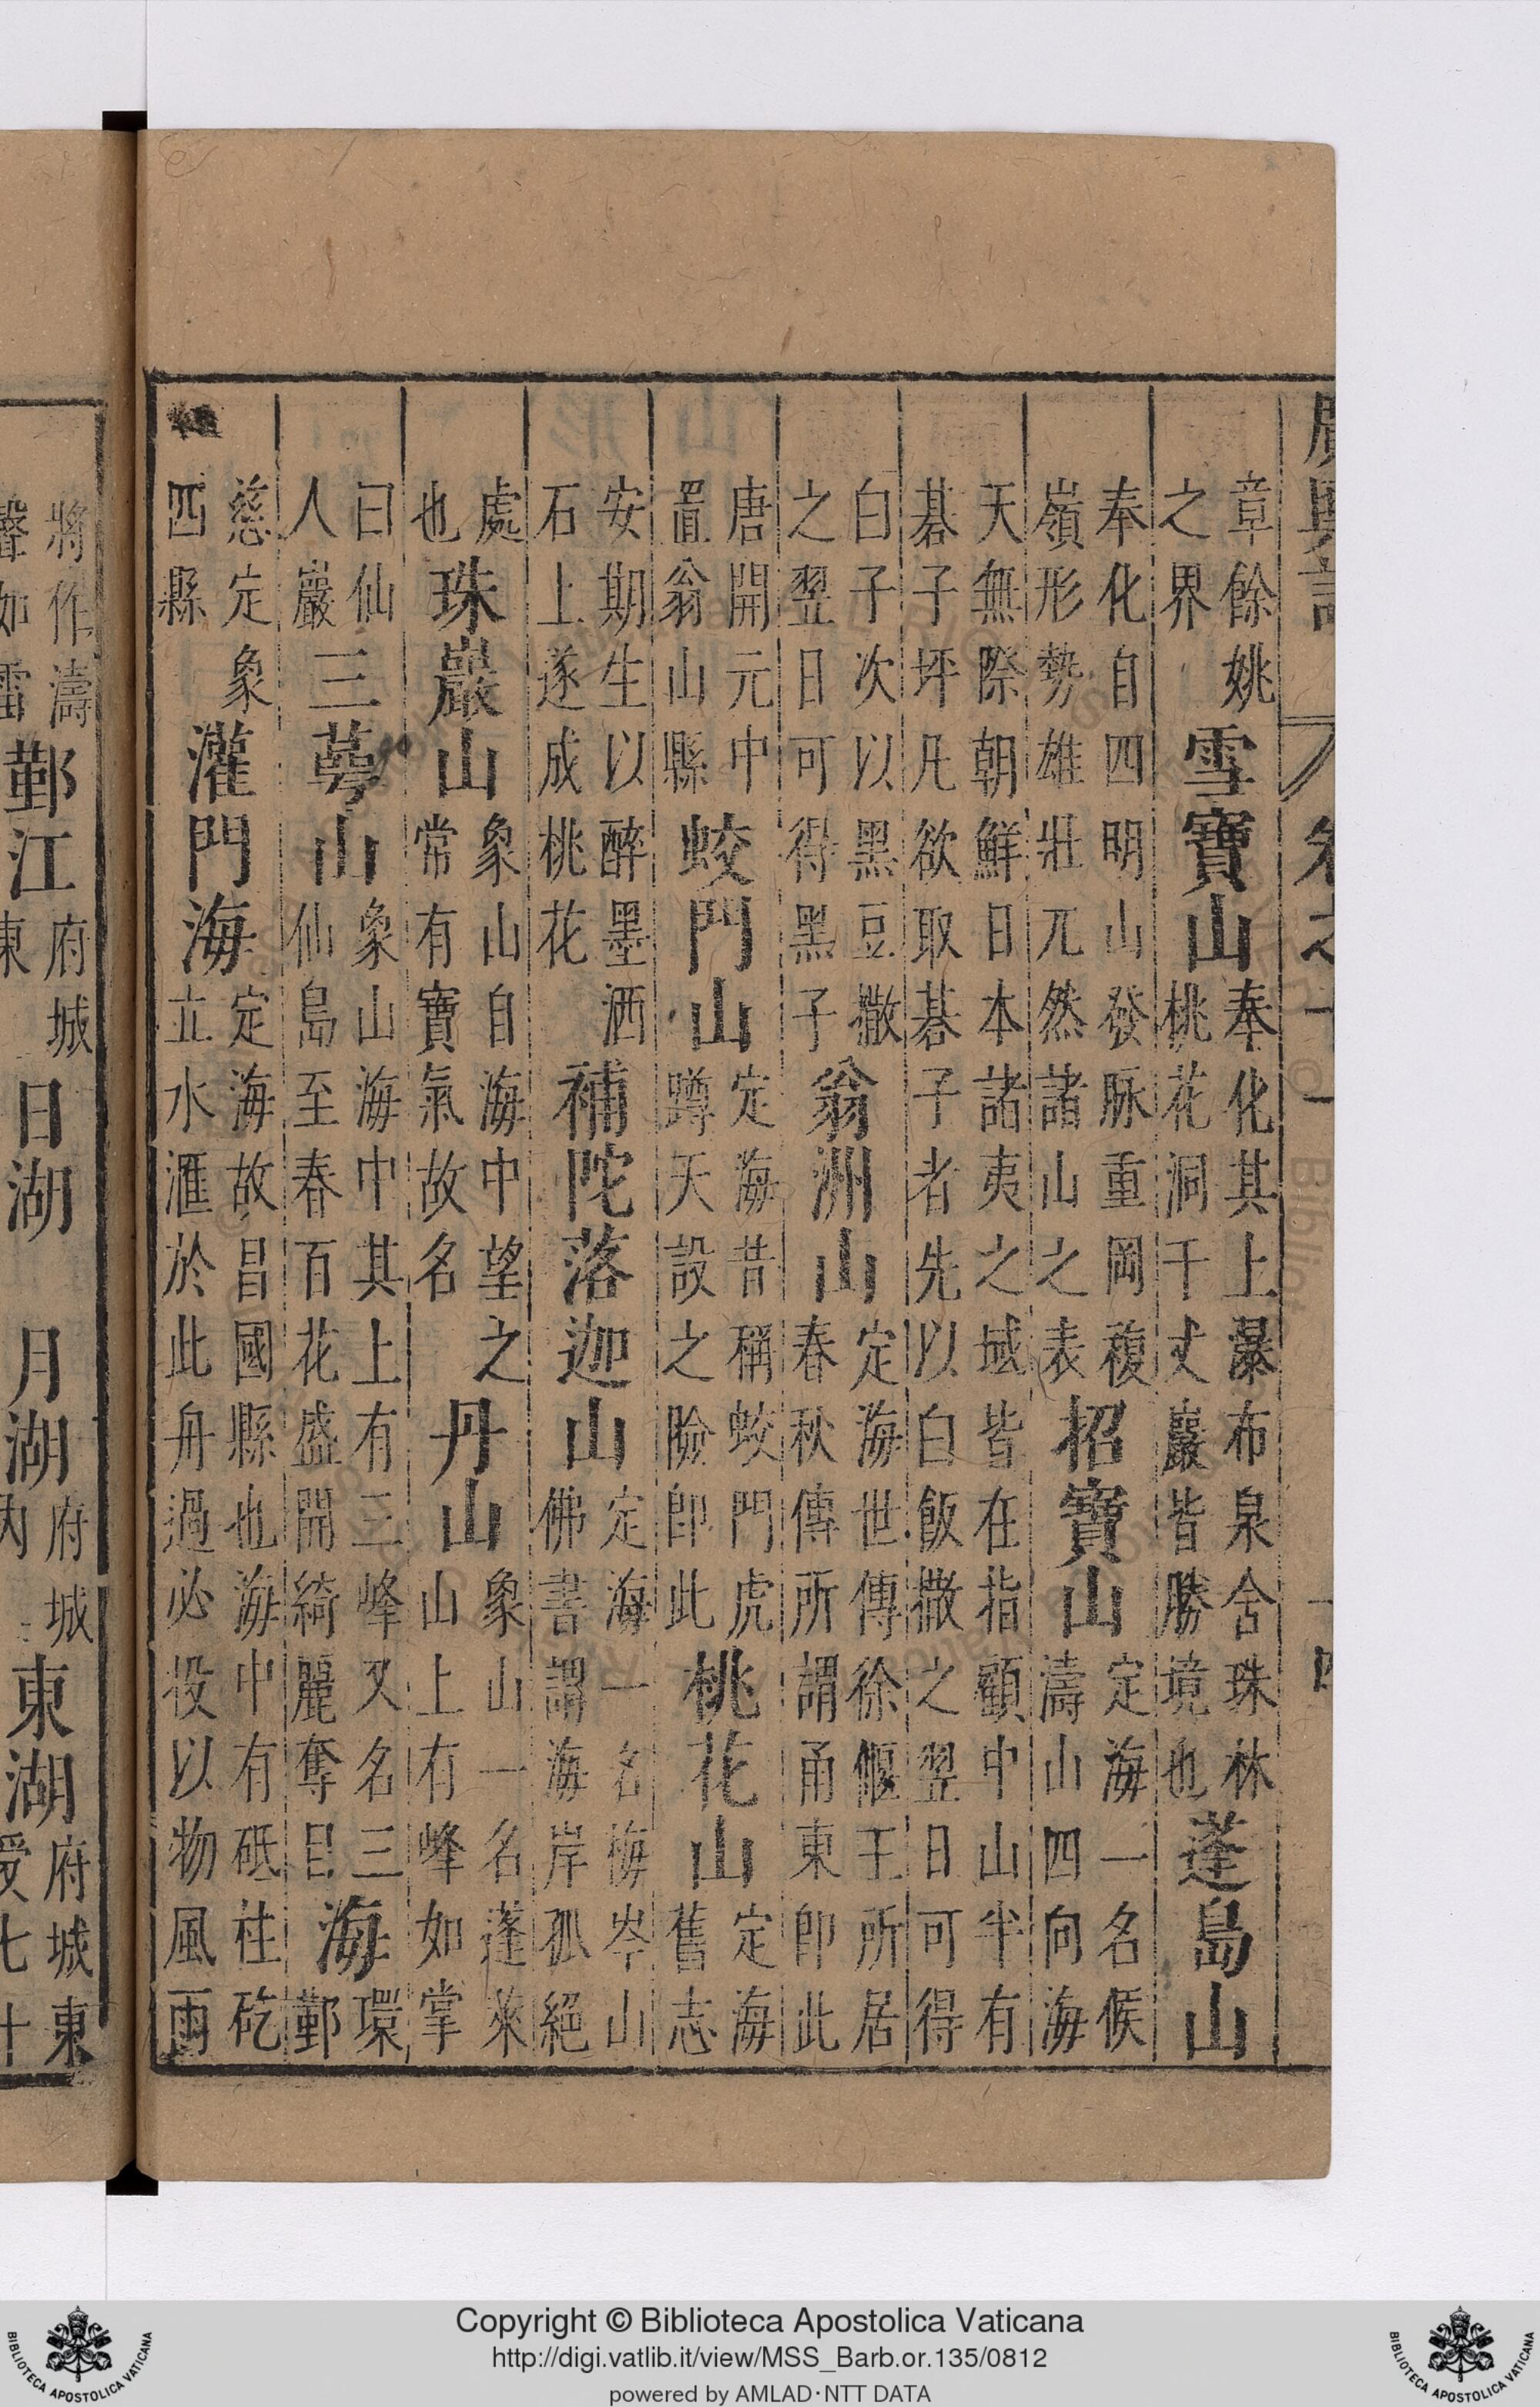 廣輿記 卷之十一
章餘姚之界雪竇山奉化其上瀑布泉含珠林桃花洞千丈巖皆勝境也蓬島山
奉化自四明山發脉重岡複嶺形勢雄壯兀然諸山之表招寶山定海一名候濤山四向海
天無際朝鮮日本諸夷之域皆在指顧中山半有碁子坪凡欲取碁子者先以白飯撒之翌日可得
白子次以黑豆撒之翌日可得黑子翁洲山定海世傳徐偃王所居春秋傳所謂甬東即此
唐開元中置翁山縣蛟門山定海昔稱蛟門虎蹲天設之險即此桃花山定海舊志
安期生以醉墨洒石上遂成桃花補陀落迦山定海一名梅岑山佛書謂海岸孤絕
處也珠巖山象山自海中望之常有寶氣故名丹山象山一名蓬萊山上有峰如掌
曰仙人巖三萼山象山海中其上有三峰又名三仙島至春百花盛開綺麗奪目海環鄞
慈定象四縣灌門海定海故昌國縣也海中有砥柱矻立水滙於此舟過必投以物風雨
將作濤聲如雷鄞江府城東日湖 月湖府城內東湖府城東受七十
Copyright © Biblioteca Apostolica Vaticana
http://digi.vatlib.it/view/MSS_Barb.or.135/0812
powered by AMLAD·NTT DATA
BIBLIOTECA APOSTOLICA VATICANA
BIBLIOTECA APOSTOLICA VATICANA